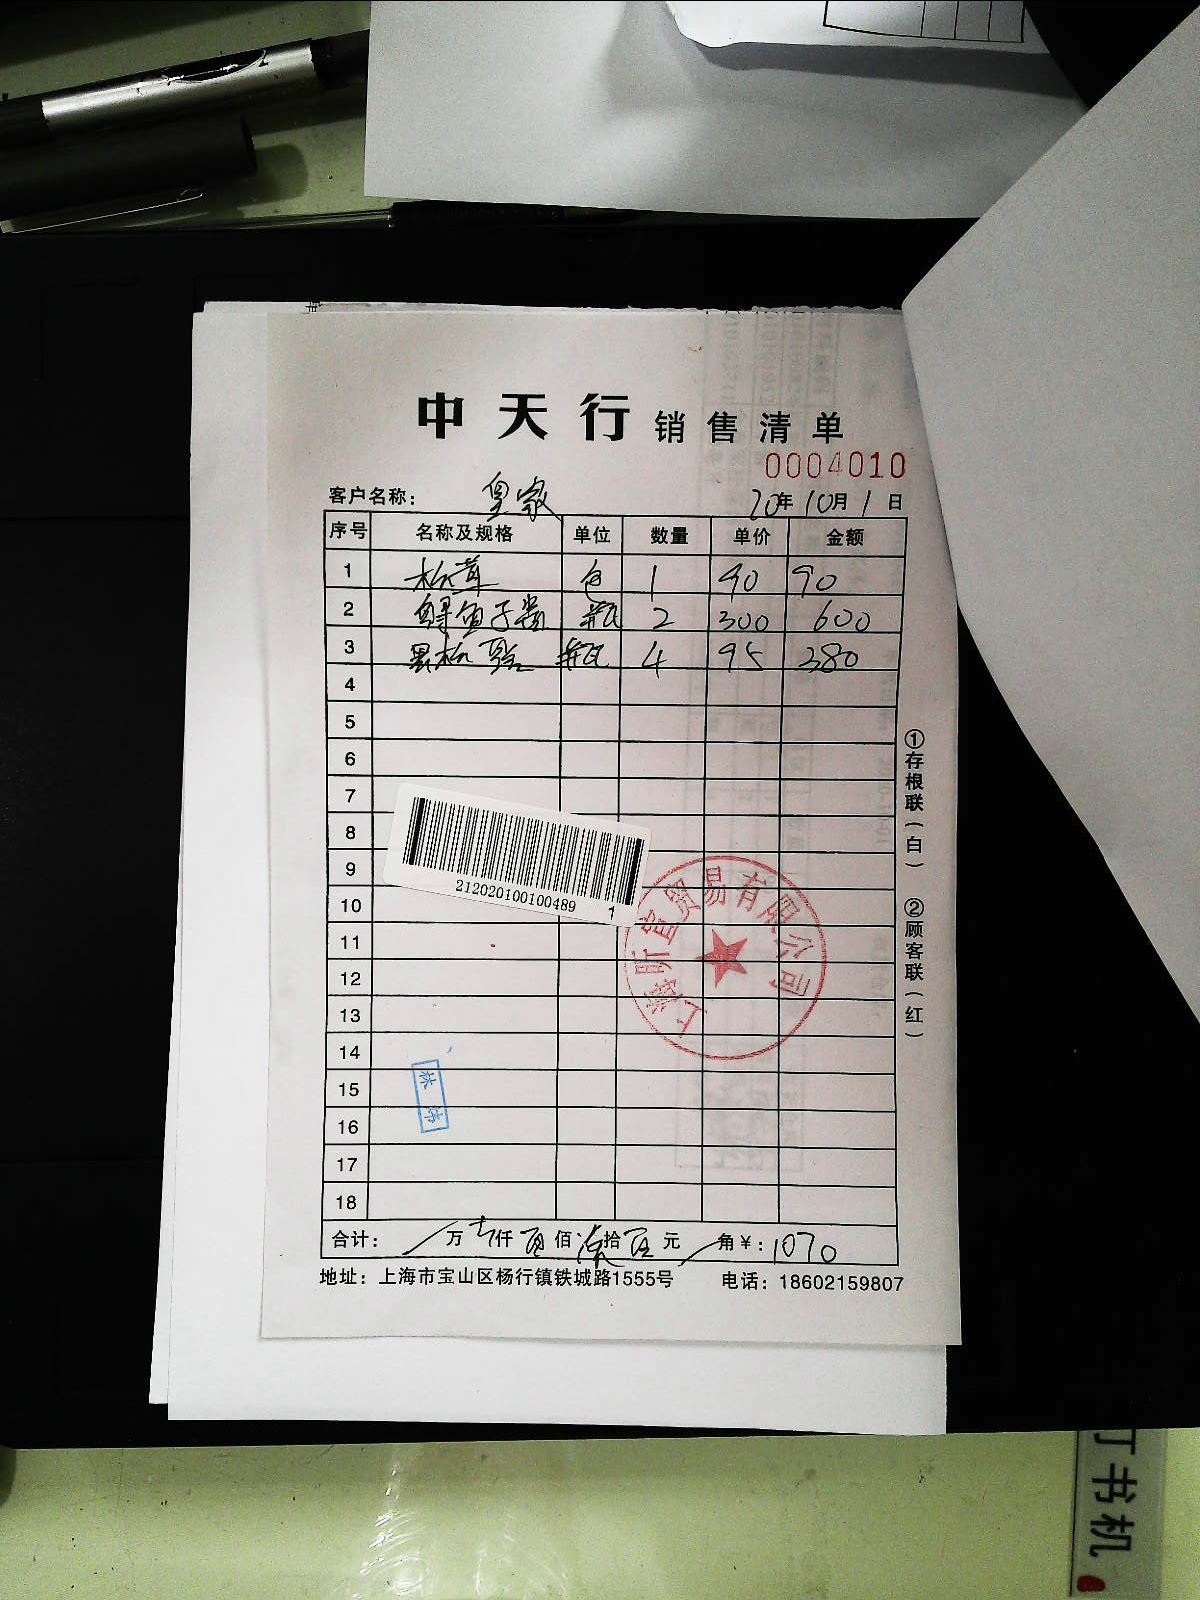 中天行 销售清单
0004010
客户名称： 皇家 20年10月1日
序号 名称及规格 单位 数量 单价 金额
1 松茸 包 1 90 90
2 鲟鱼子酱 瓶 2 300 600
3 黑松 瓶 4 95 380
4
5
6
7
8
9
10
11
12
13
14
15
16
17
18
212020100100489 1
上海昕宜贸易有限公司
林
合计： 万 仟 佰 拾 元 角￥：1070
地址：上海市宝山区杨行镇铁城路1555号 电话：18602159807
①存根联（白） ②顾客联（红）
丁书机